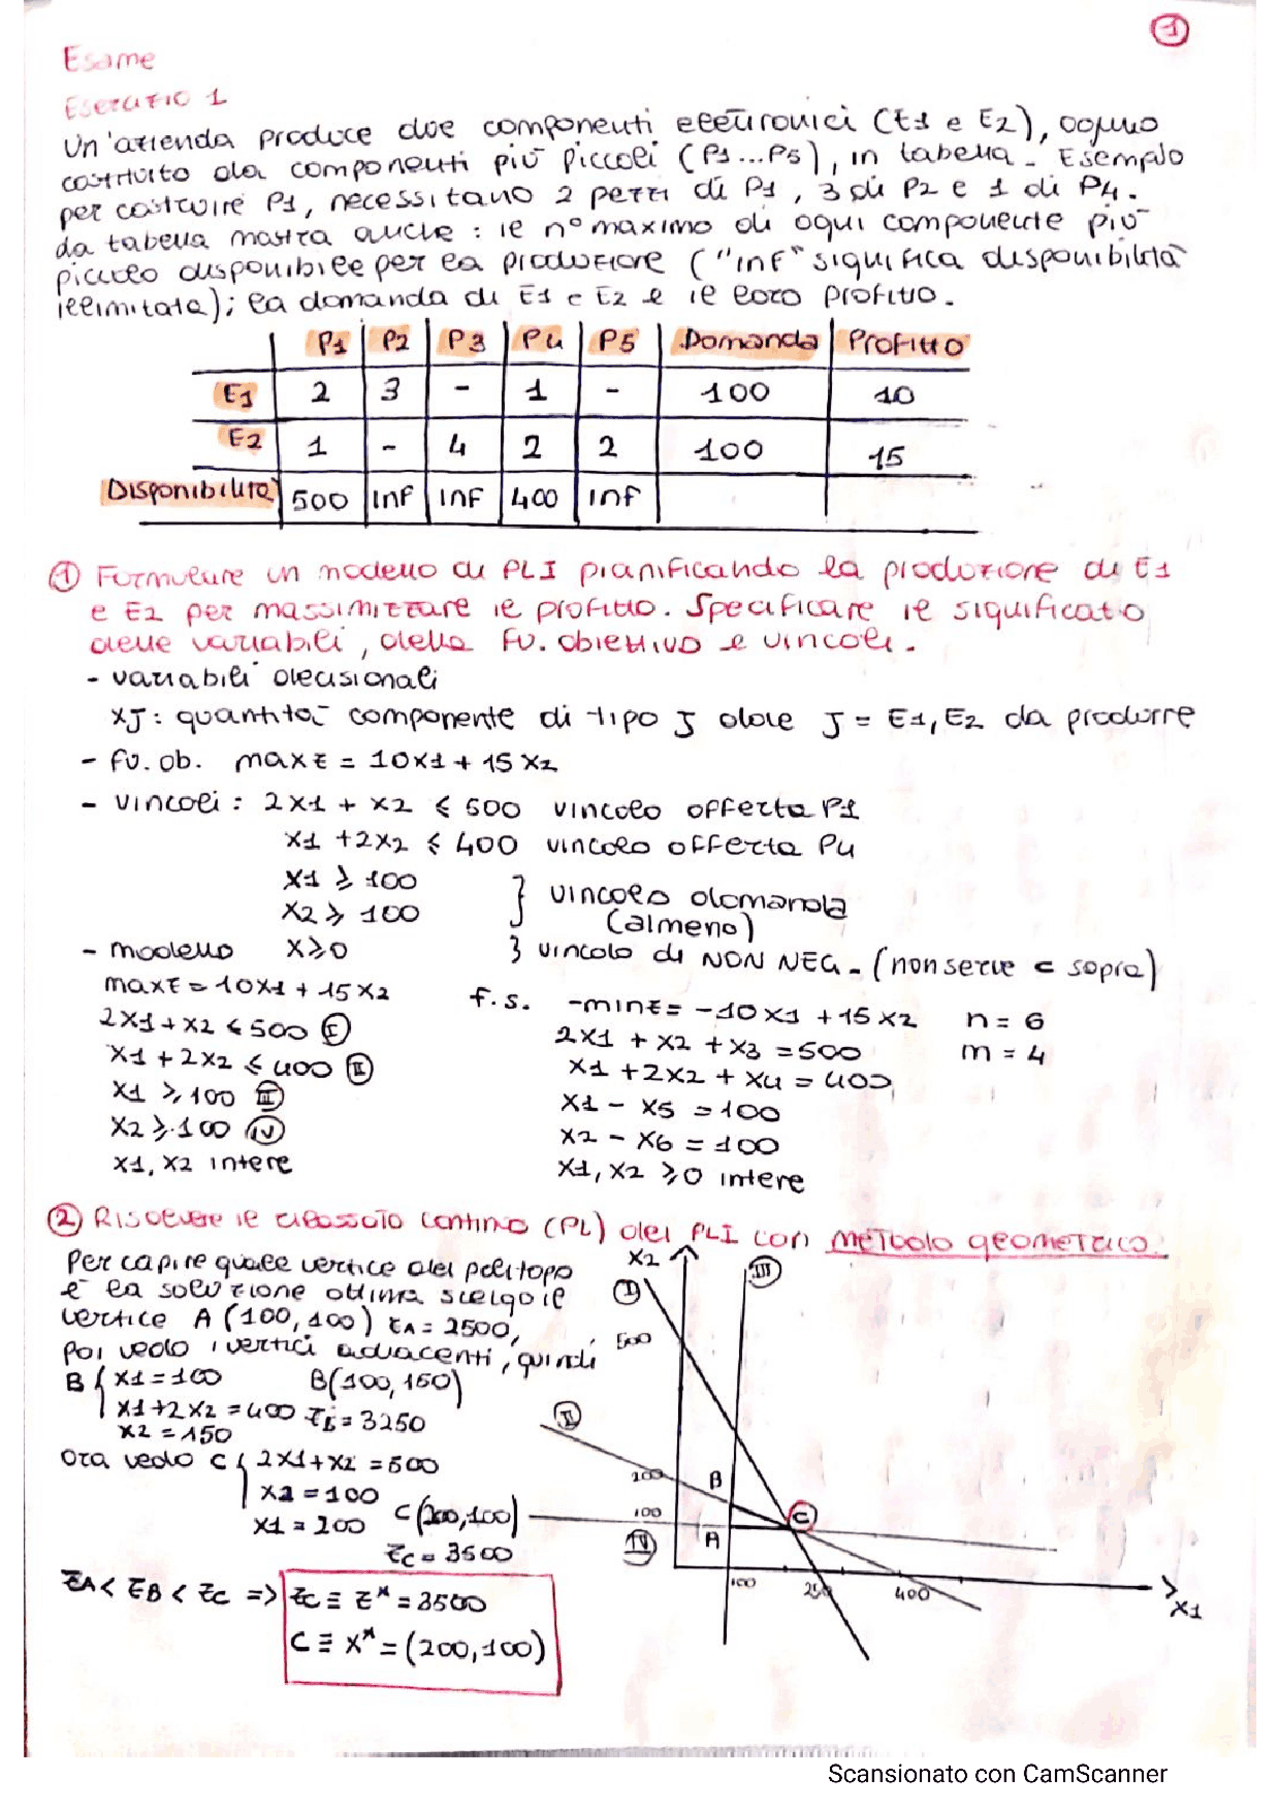 1
Esame
Esercizio 1
Un'azienda produce due componenti elettronici (E1 e E2), ognuno
costituito da componenti più piccoli (P1...P5), in tabella. Esempio
per costruire P1, necessitano 2 pezzi di P1, 3 di P2 e 1 di P4.
La tabella mostra anche: il n° maximo di ogni componente più
piccolo disponibile per la produzione ("inf" significa disponibilità
illimitata); la domanda di E1 e E2 e il loro profitto.
P1 P2 P3 P4 P5 Domanda Profitto
E1 2 3 - 1 - 100 10
E2 1 - 4 2 2 100 15
Disponibilità 500 inf inf 400 inf
① Formulare un modello di PLI pianificando la produzione di E1
e E2 per massimizzare il profitto. Specificare il significato
delle variabili, della fu. obiettivo e vincoli.
- variabili decisionali
xJ: quantità componente di tipo J dove J = E1, E2 da produrre
- fu. ob. max z = 10x1 + 15x2
- vincoli: 2x1 + x2 ≤ 500 vincolo offerta P1
x1 + 2x2 ≤ 400 vincolo offerta P4
x1 ≥ 100
x2 ≥ 100 } vincolo domanda
(almeno)
- modello x≥0 } vincolo di NON NEG. (non serve c sopra)
max z = 10x1 + 15x2
2x1 + x2 ≤ 500 Ⓘ
x1 + 2x2 ≤ 400 Ⅱ
x1 ≥ 100 Ⅲ
x2 ≥ 100 Ⅳ
x1, x2 intere
f.s. -min z = -10x1 + 15x2 n = 6
2x1 + x2 + x3 = 500 m = 4
x1 + 2x2 + x4 = 400
x1 - x5 = 100
x2 - x6 = 100
x1, x2 ≥0 intere
② Risolvere il rilassato continuo (PL) del PLI con metodo geometrico.
Per capire quale vertice del politopo
è la soluzione ottima scelgo il
vertice A (100,100) zA = 2500,
poi vedo i vertici adiacenti, quindi
B { x1 = 100 B(100,150)
x1+2x2 = 400 zB = 3250
x2 = 150
Ora vedo C { 2x1+x2 = 500
x2 = 100
x1 = 200 C(200,100)
zC = 3500
zA < zB < zC => zC ≡ z* = 3500
C ≡ x* = (200,100)
x2
I
III
500
II
200
B
100
C
IV
A
100
250
400
x1
Scansionato con CamScanner